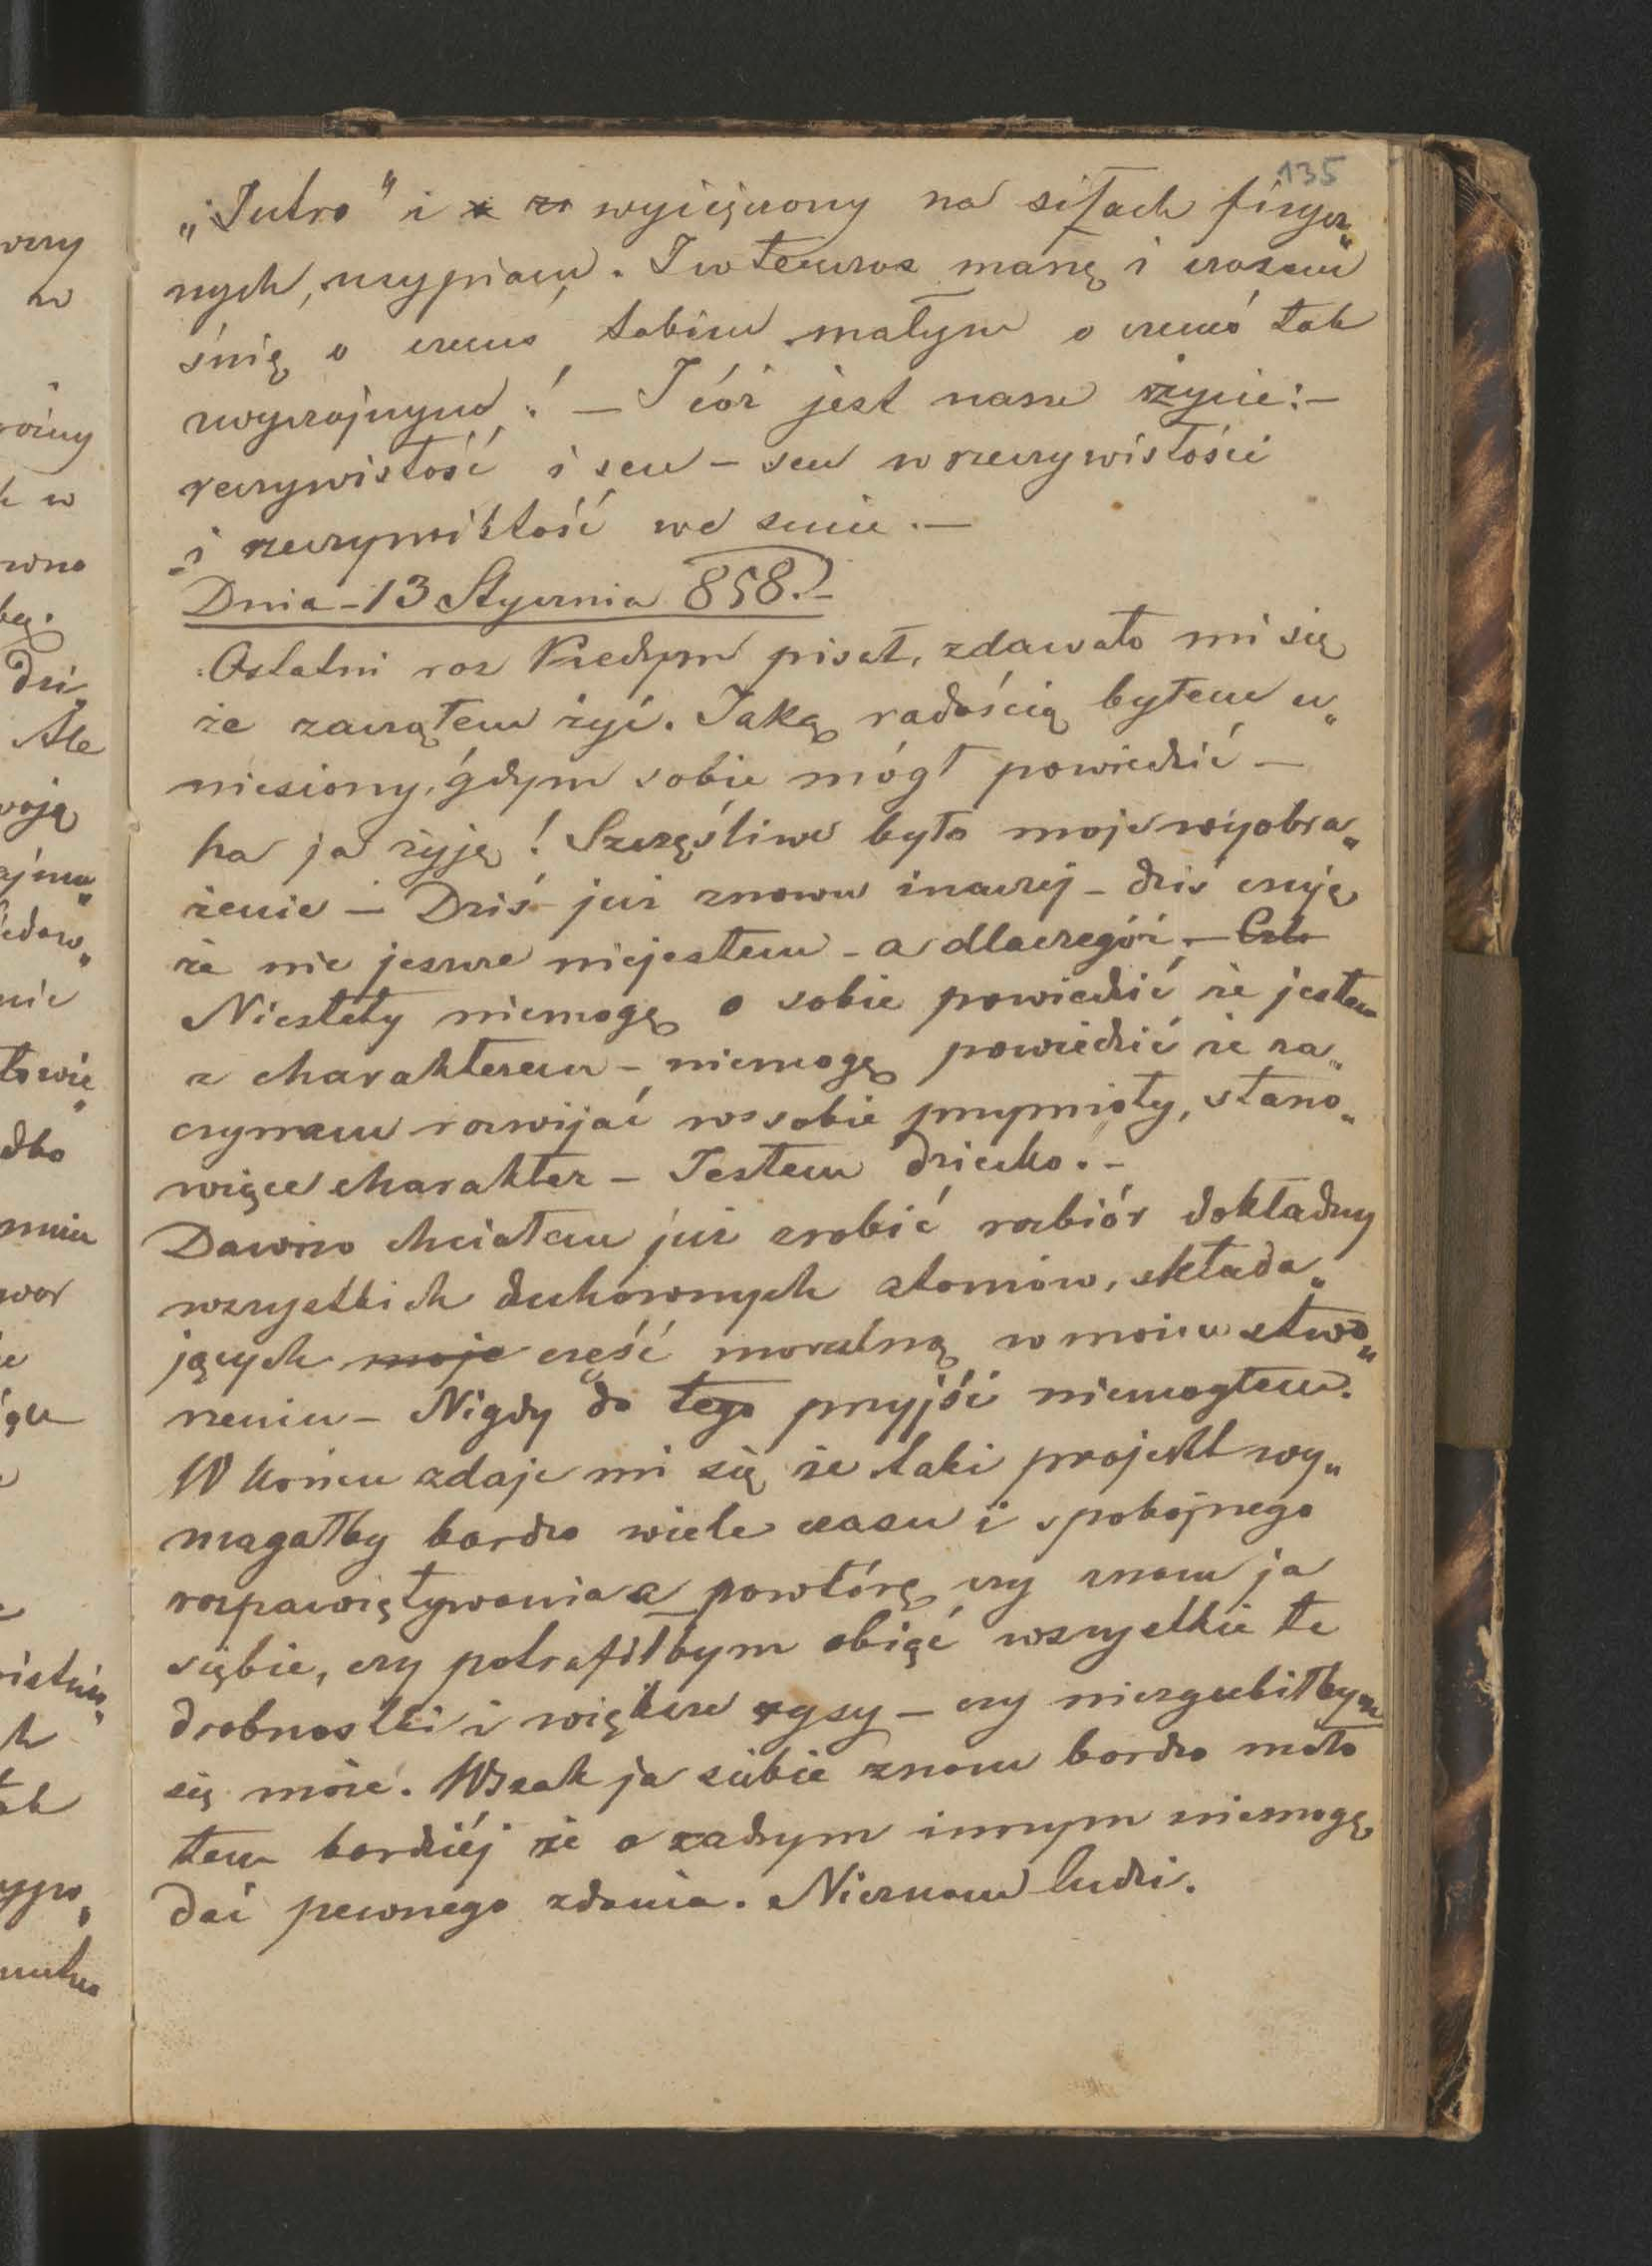 135
„Jutro" i wycięczony na siłach fizycz„
nych, usypiam. I wtenczas marzę i czasem
śnię o czemś takiem małym o czemś tak
zwyczajnym! — I cóż jest nasze życie:—
rzeczywistość i sen — sen w rzeczywistości
i rzeczywistość we śnie.—
Dnia - 13 Stycznia 858.-
Ostatni raz kiedym pisał, zdawało mi się
że zacząłem żyć. Jaką radością byłem u„
niesiony, gdym sobie mógł powiedzić —
ha ja żyję! Szczęśliwe było moje wyobra„
żenie — Dziś już znowu inaczej — dziś czuję
że nie jeszcze niejestem - a dlaczegóż. —
Niestety niemogę o sobie powiedzić że jestem
z charakterem - niemogę powiedzić że za„
czynam rozwijać w sobie przymioty, stano„
wiące charakter — Jestem dziecko.-
Dawno chciałem już zrobić rozbiór dokładny
wszystkich duchownych atomów, składa„
jących moje część moralną w moim stwo„
rzeniu — Nigdy do tego przyjść niemogłem.
W końcu zdaje mi się że taki projekt wy„
magałby bardzo wiele czasu i spokojnego
rozpamiętywania a powtórę czy znam ja
siębie, czy potrafiłbym obiąć wszystkie te
drobnostki i większe rysy — czy niezgubiłbym
się może. Wszak ja siebie znam bardzo mało
tem bardziéj że o żadnym innym niemogę
dać pewnego zdania. Nieznam ludzi.
wczy
w
k w
wno
bę.
dzi„
Ale
woją
ajmu„
nie
dko
mnie
wor
k
tak